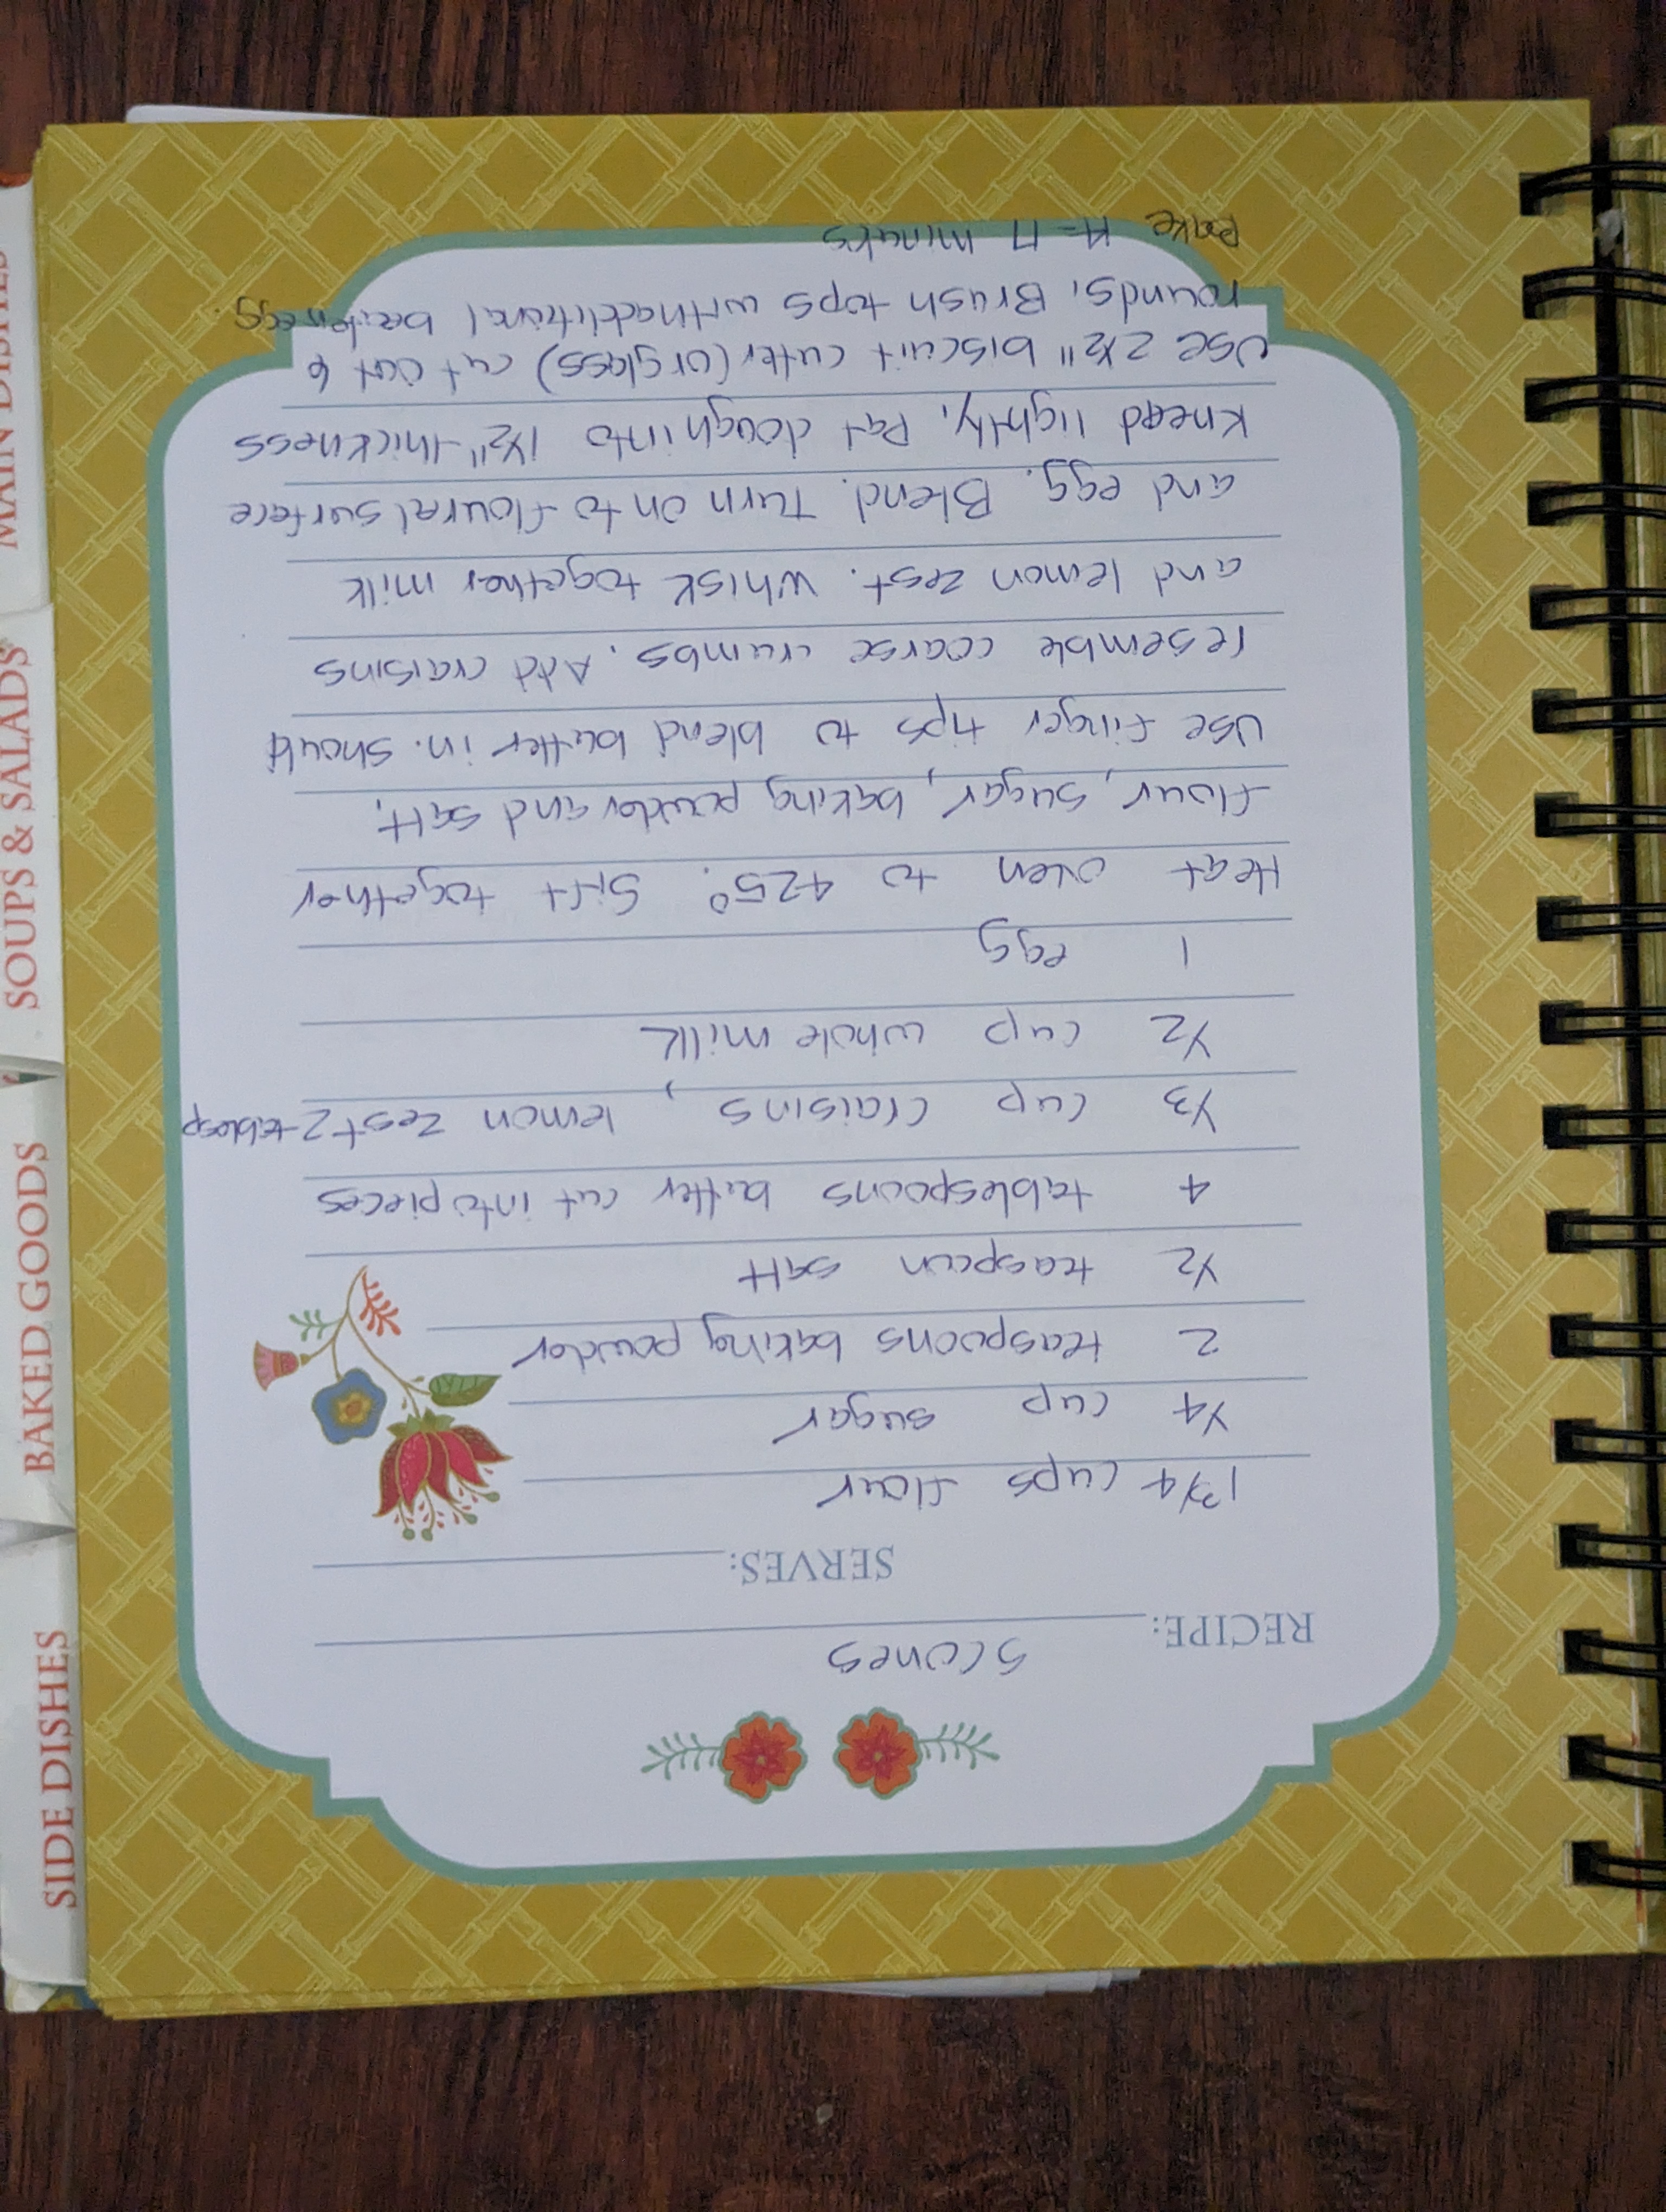 RECIPE: Scones
SERVES:
1 3/4 cups flour
1/4 cup sugar
2 teaspoons baking powder
1/2 teaspoon salt
4 tablespoons butter cut into pieces
1/3 cup craisins, lemon zest 2 tablesp
1/2 cup whole milk
1 egg
Heat oven to 425°. Sift together
flour, sugar, baking powder and salt.
Use finger tips to blend butter in. Should
resemble coarse crumbs. Add craisins
and lemon zest. Whisk together milk
and egg. Blend. Turn on to floural surface
Knead lightly, Pat dough into 1 1/2" thickness
Use 2 1/2" biscuit cutter (or glass) cut out 6
rounds. Brush tops with additional beaten egg.
Bake minutes
SIDE DISHES
BAKED GOODS
SOUPS & SALADS
MAIN DISHES